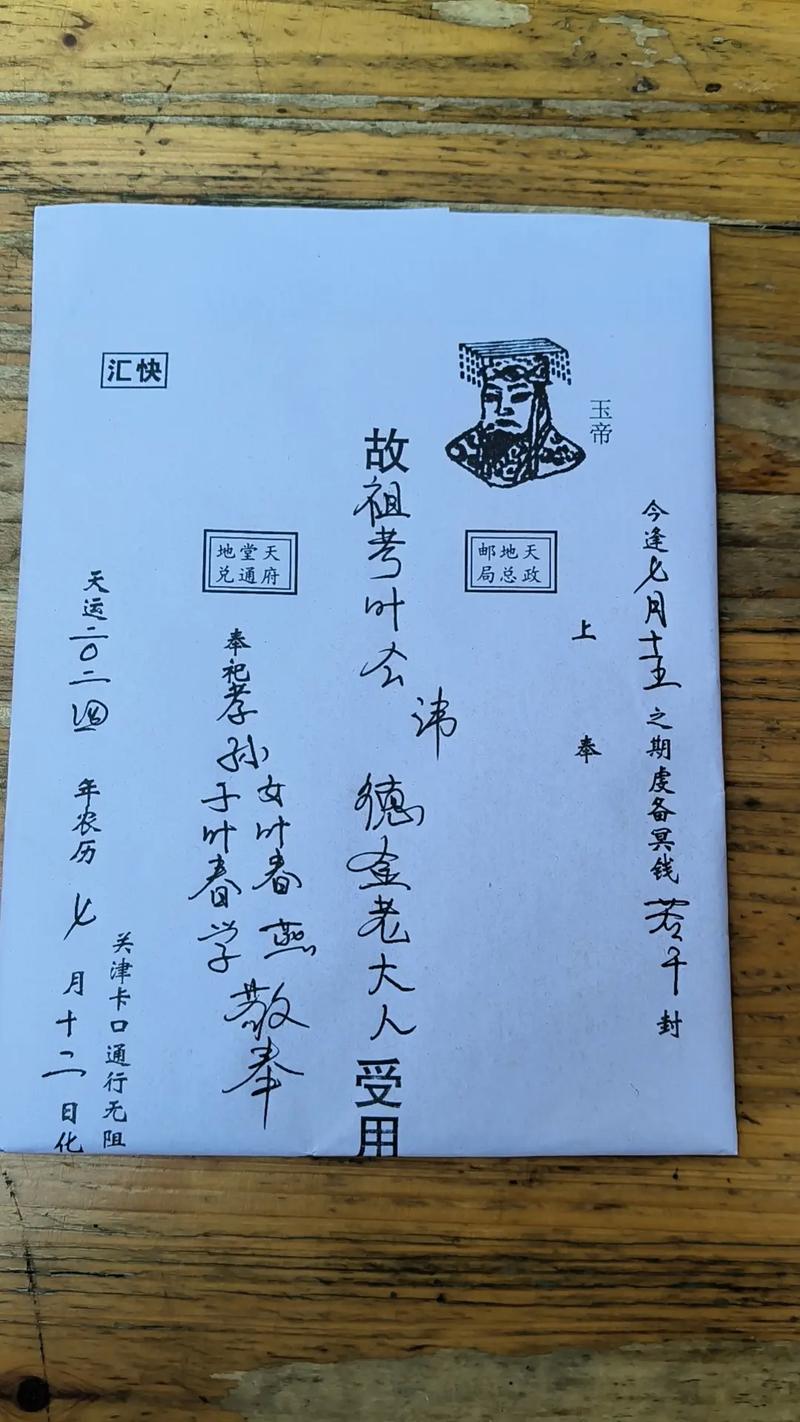 今逢七月十五之期虔备冥钱若干封
上奉
玉帝
天地邮
政总局
故祖考叶公讳德金老大人受用
天堂地
府通兑
奉祀孝孙
女叶春燕
子叶春学
敬奉
快汇
关津卡口通行无阻
天运二〇二四年农历七月十二日化